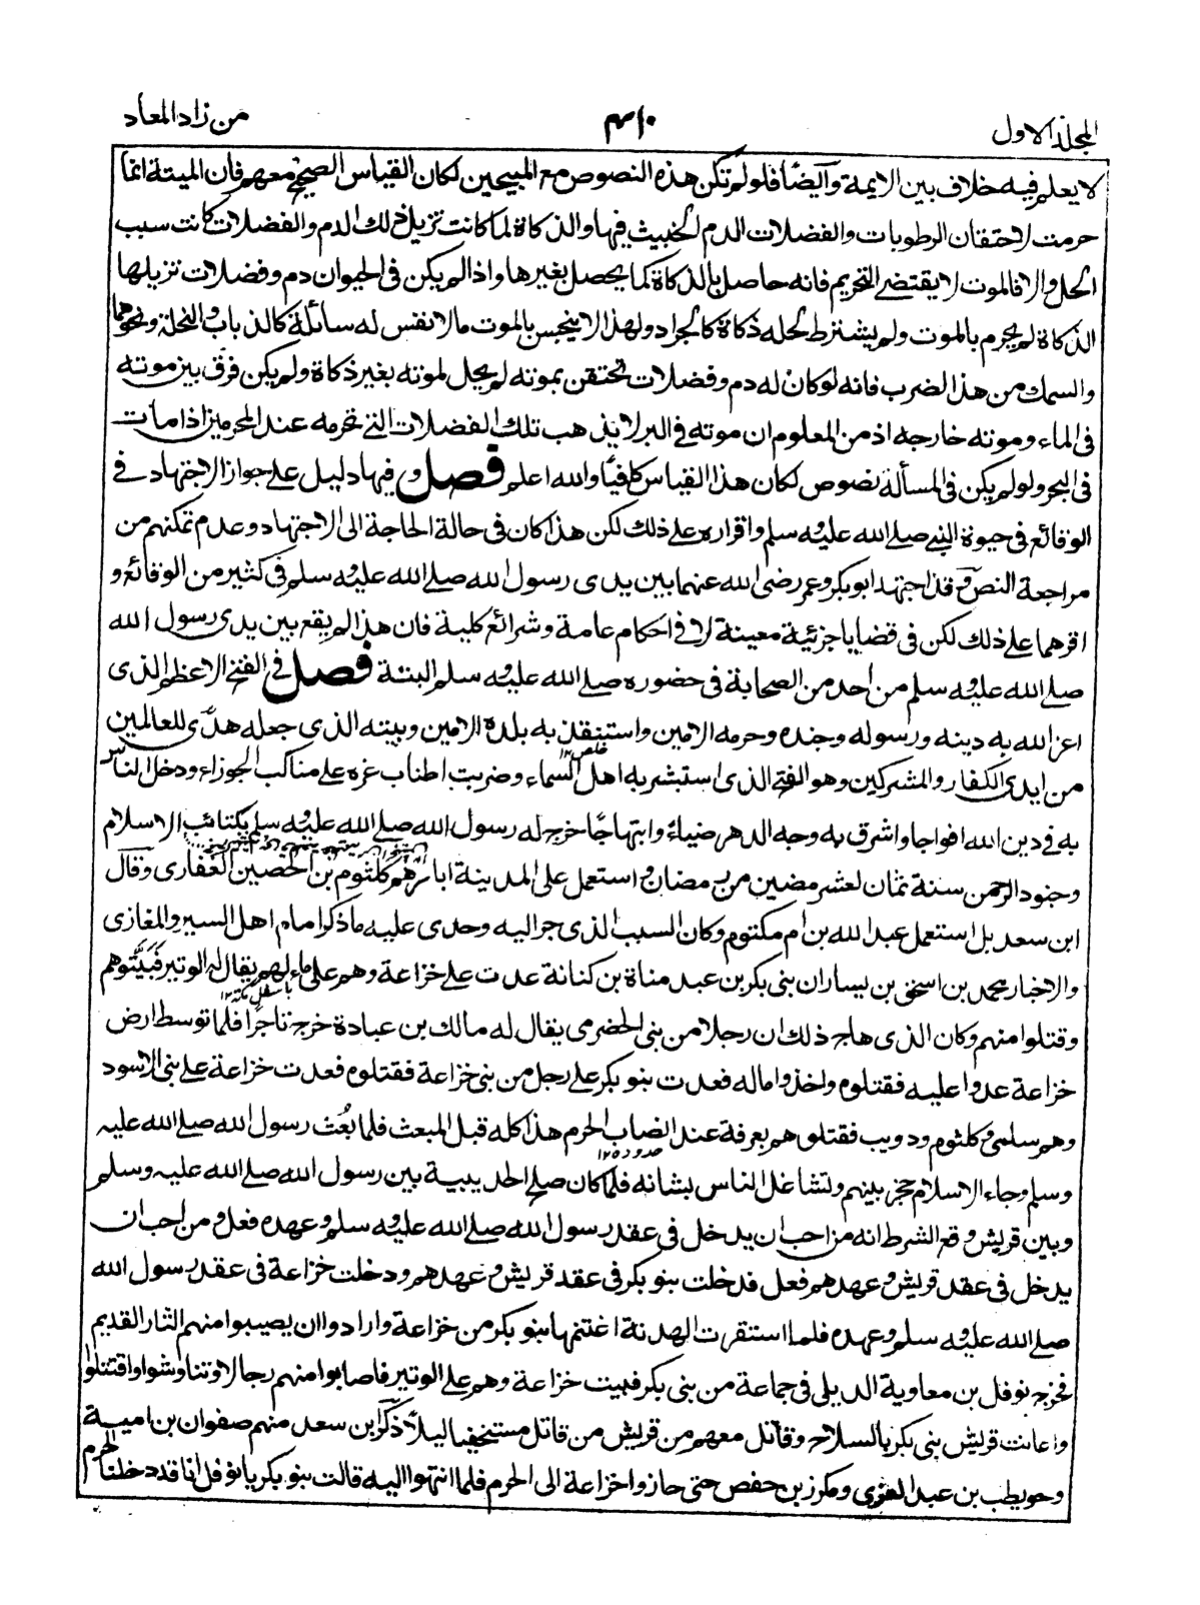 المجلد الاول
٤١٠
من زاد المعاد
لا يعلم فيه خلاف بين الايمة وآيضًا فلو لم تكن هذه النصوص مع المبيحين لكان القياس الصحيح معهم فان الميتة انما
حرمت لاحتقان الرطوبات والفضلات الدم الخبيث فيها والذكاة لما كانت تزيل ذلك الدم والفضلات كانت سبب
الحل والا فالموت لا يقتضى التحريم فانه حاصل بالذكاة كما يحصل بغيرها واذا لم يكن فى الحيوان دم وفضلات تزيلها
الذكاة لم يحرم بالموت ولم يشترط لحله ذكاة كالجراد ولهذا لا ينجس بالموت ما لا نفس له سائلة كالذباب والنحلة ونحوهما
والسمك من هذا الضرب فانه لو كان له دم وفضلات تحتقن بموته لم يحل لموته بغير ذكاة ولم يكن فرق بين موته
فى الماء وموته خارجه اذ من المعلوم ان موته فى البر لا يذهب تلك الفضلات التى تحرمه عند المحرمين اذا مات
فى البحر ولو لم يكن فى المسألة نصوص لكان هذا القياس كافيًا والله اعلم فصل وفيها دليل على جواز الاجتهاد فى
الوقائع فى حيوة النبى صلے الله عليه وسلم واقراره على ذلك لكن هذا كان فى حالة الحاجة الى الاجتهاد وعدم تمكنهم من
مراجعة النص وقد اجتهد ابو بكر وعمر رضى الله عنهما بين يدى رسول الله صلے الله عليه وسلم فى كثير من الوقائع و
اقرهما على ذلك لكن فى قضايا جزئية معينة لا فى احكام عامة وشرائع كلية فان هذا لم يقع بين يدى رسول الله
صلے الله عليه وسلم من احد من الصحابة فى حضوره صلے الله عليه وسلم البتة فصل فى الفتح الاعظم الذى
اعز الله به دينه ورسوله وجنده وحرمه الامين واستنقذ به بلده الامين وبيته الذى جعله هدًى للعالمين
خلص ١٢
من ايدى الكفار والمشركين وهو الفتح الذى استبشر به اهل السماء وضربت اطناب عزه على مناكب الجوزاء ودخل الناس
به فى دين الله افواجا واشرق به وجه الدهر ضياءً وابتهاجًا خرج له رسول الله صلے الله عليه وسلم بكتائب الاسلام
وجنود الرحمن سنة ثمان لعشر مضين من رمضان و استعمل على المدينة ابا رُهْم كلثوم بن الحصين الغفارى وقال
ابن سعد بل استعمل عبد الله بن ام مكتوم وكان السبب الذى جر اليه وحدى عليه ما ذكر امام اهل السير والمغازى
والاخبار محمد بن اسحٰق بن يسار ان بنى بكر بن عبد مناة بن كنانة عدت على خزاعة وهم على ماء لهم يقال له الوتير فبَيَّتُوهم
باسفل مكة ١٢
وقتلوا منهم وكان الذى هاج ذلك ان رجلا من بنى الحضرمى يقال له مالك بن عبادة خرج تاجرًا فلما توسط ارض
خزاعة عدوا عليه فقتلوه واخذوا ماله فعدت بنو بكر على رجل من بنى خزاعة فقتلوه فعدت خزاعة على بنى الاسود
وهم سلمى وكلثوم وذويب فقتلوهم بعرفة عند انصاب الحرم هذا كله قبل المبعث فلما بُعث رسول الله صلے الله عليه
حدوده ١٢
وسلم وجاء الاسلام حجز بينهم وتشاغل الناس بشانه فلما كان صلح الحديبية بين رسول الله صلے الله عليه وسلم
وبين قريش وقع الشرط انه من احب ان يدخل فى عقد رسول الله صلے الله عليه وسلم وعهده فعل ومن احب ان
يدخل فى عقد قريش وعهدهم فعل فدخلت بنو بكر فى عقد قريش وعهدهم ودخلت خزاعة فى عقد رسول الله
صلے الله عليه وسلم وعهده فلما استقرت الهدنة اغتنمها بنو بكر من خزاعة وارادوا ان يصيبوا منهم الثار القديم
فخرج نوفل بن معاوية الديلى فى جماعة من بنى بكر فبيت خزاعة وهم على الوتير فاصابوا منهم رجالا وتناوشوا واقتتلوا
واعانت قريش بنى بكر بالسلاح وقاتل معهم من قريش من قاتل مستخفيا ليلًا ذكر ابن سعد منهم صفوان بن امية
وحويطب بن عبد العزى ومكرز بن حفص حتى حازوا خزاعة الى الحرم فلما انتهوا اليه قالت بنو بكر يا نوفل انا قد دخلنا الحرم